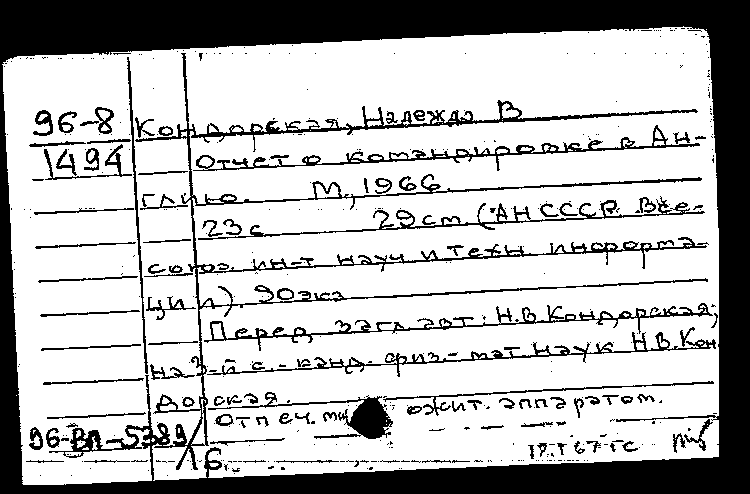 96-8 Кондорская, Надежда В
1494 Отчет о командировке в Ан-
глию. М., 1966.
23с 29cm (АН СССР. Все-
союз. ин-т науч и техн информа-
ции). 90экз
Перед загл авт: Н.В.Кондорская;
на 3-й с. - канд. физ.-мат. наук Н.В.Кон
дорская.
Отпеч. ожит. аппаратом.
96-ВП-5389/
16.